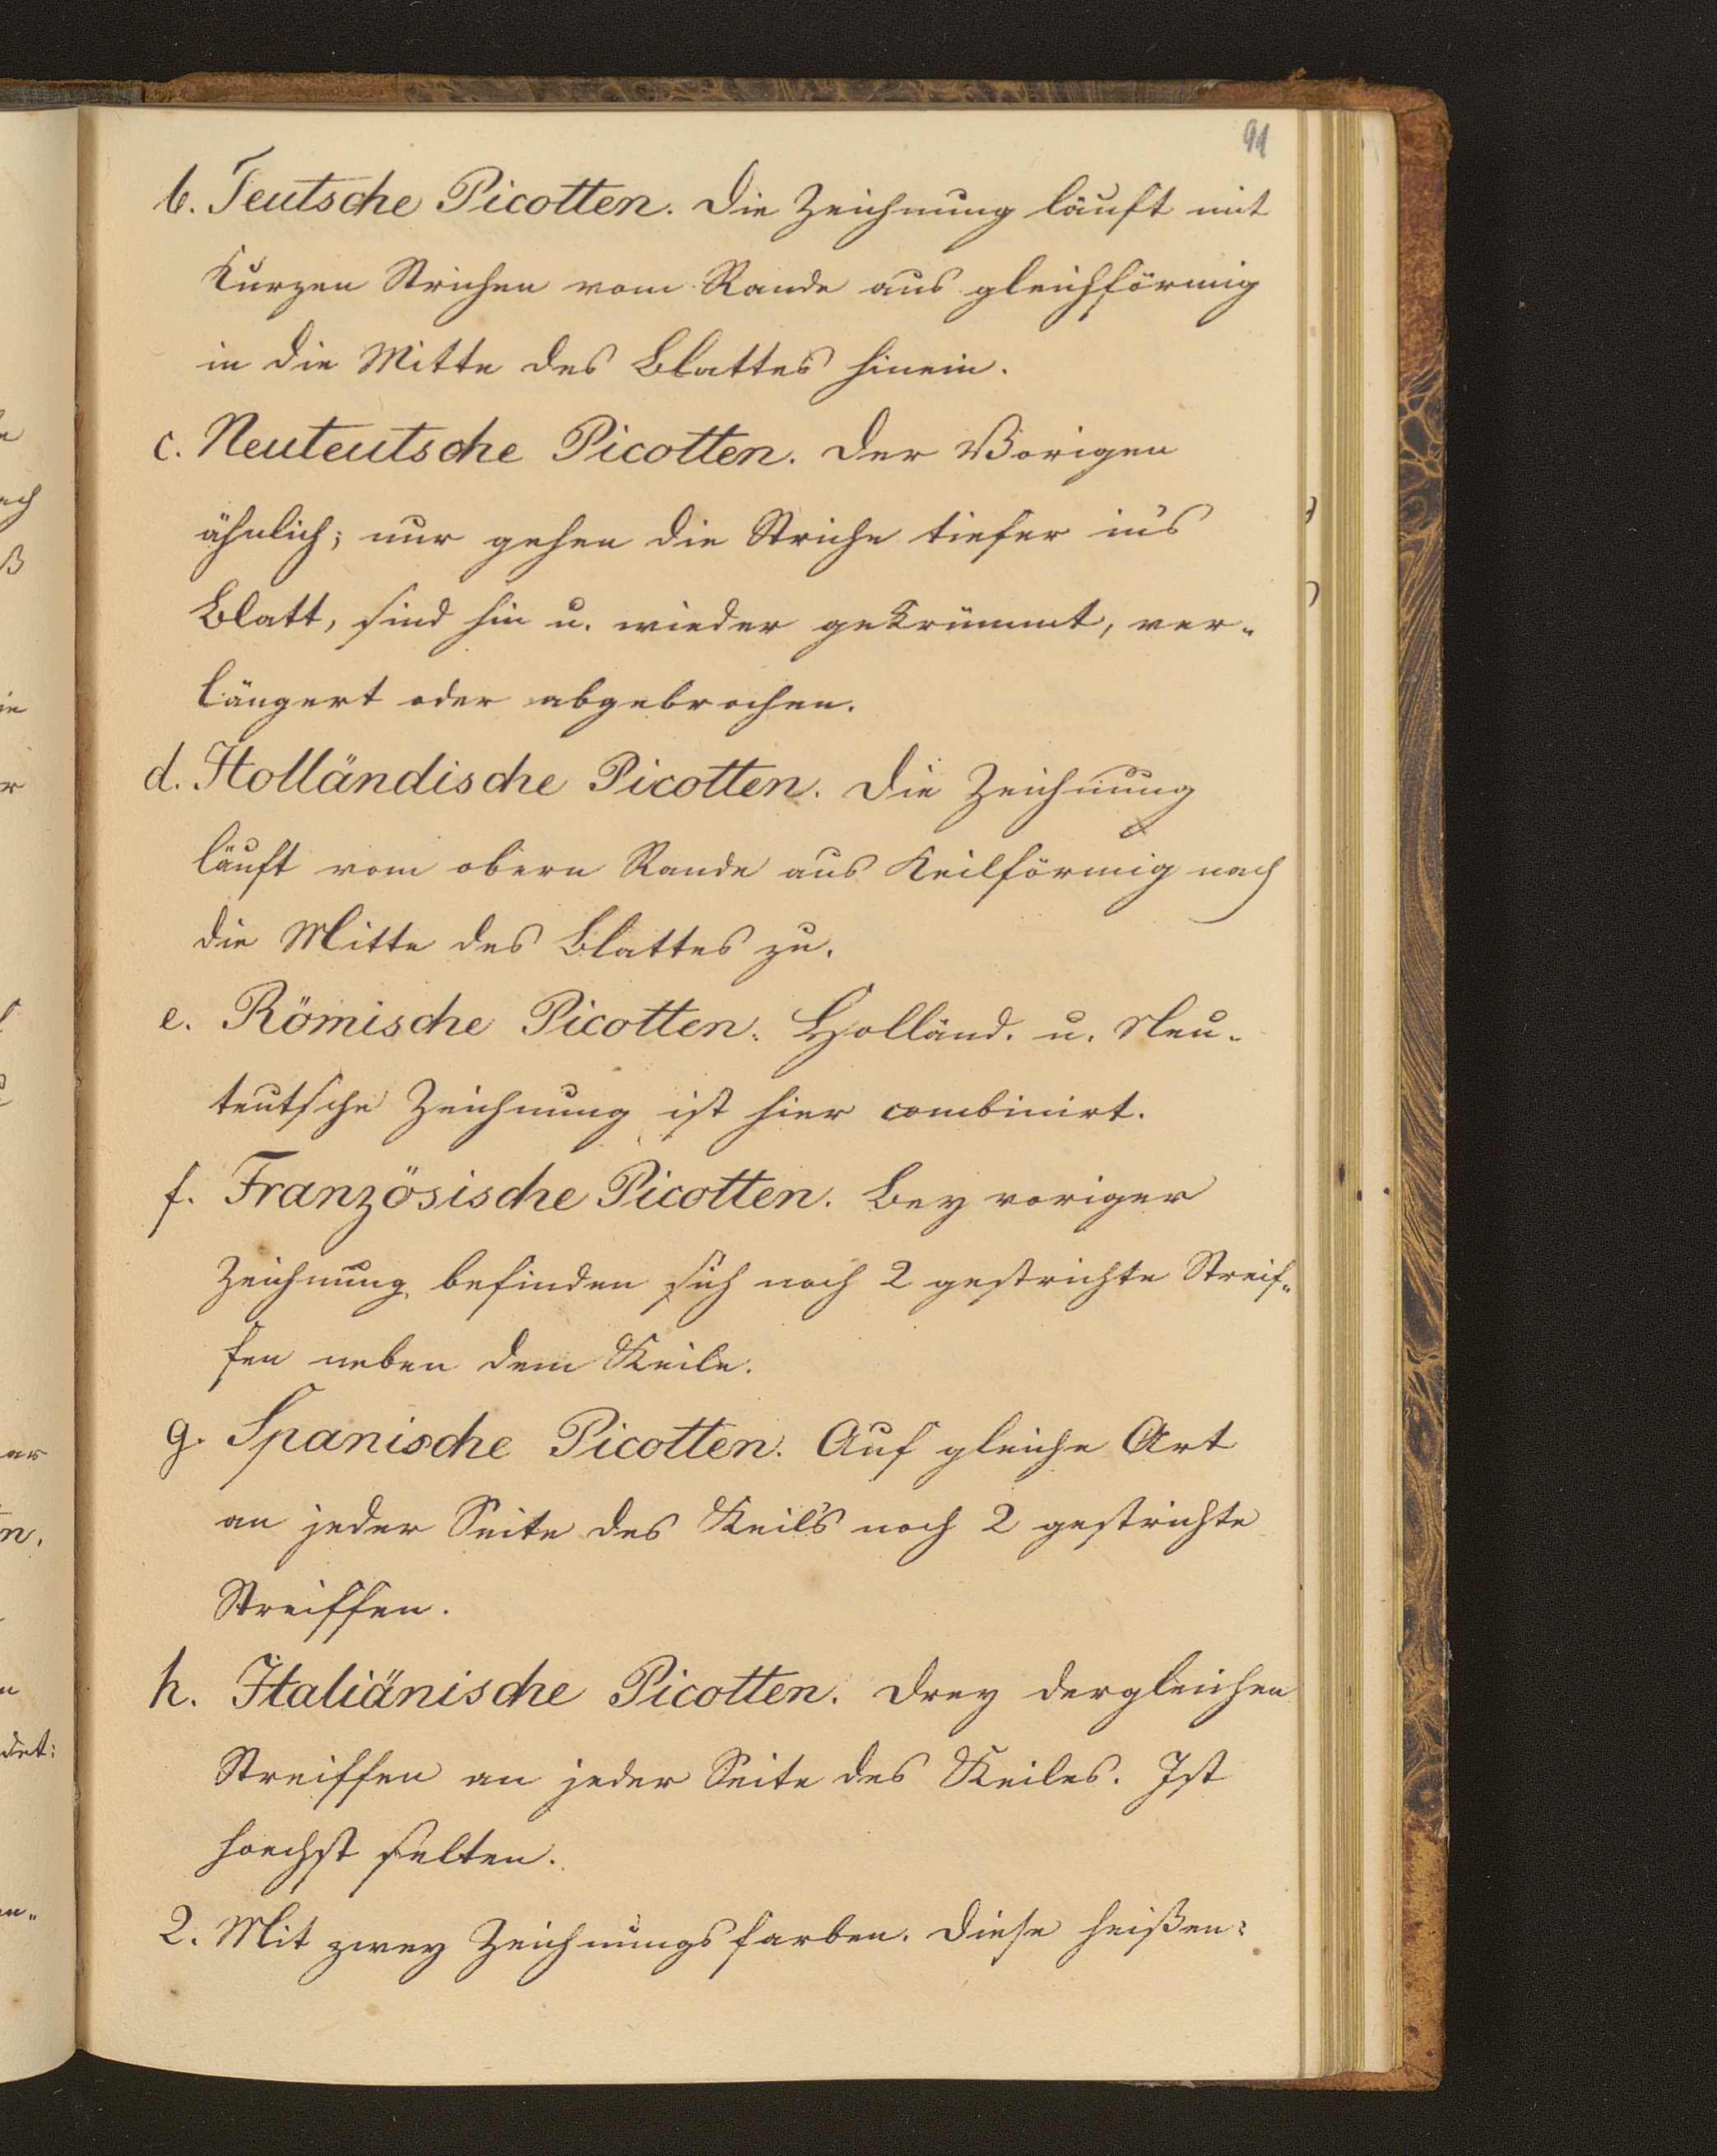 91
b. Teutsche Picotten. Die Zeichnung läuft mit
kurzen Strichen vom Rande aus gleichförmig
in die Mitte des Blattes hinein.
c. Neuteutsche Picotten. Der Vorigen
ähnlich; nur gehen die Striche tiefer in's
Blatt, sind hin u. wieder gekrümmt, ver-
längert oder abgebrochen.
d. Holländische Picotten. Die Zeichnung
läuft vom obern Rande aus keilförmig nach
die Mitte des Blattes zu.
e. Römische Picotten. Holländ. u. Neu-
teutsche Zeichnung ist hier combinirt.
f. Französische Picotten. Bey voriger
Zeichnung befinden sich noch 2 gestrichte Streif-
fen neben dem Keile.
g. Spanische Picotten. Auf gleiche Art
an jeder Seite des Keils noch 2 gestrichte
Streiffen.
h. Italiänische Picotten. Drey dergleichen
Streiffen an jeder Seite des Keiles. Ist
hoechst selten.
2. Mit zwey Zeichnungsfarben. Diese heißen: